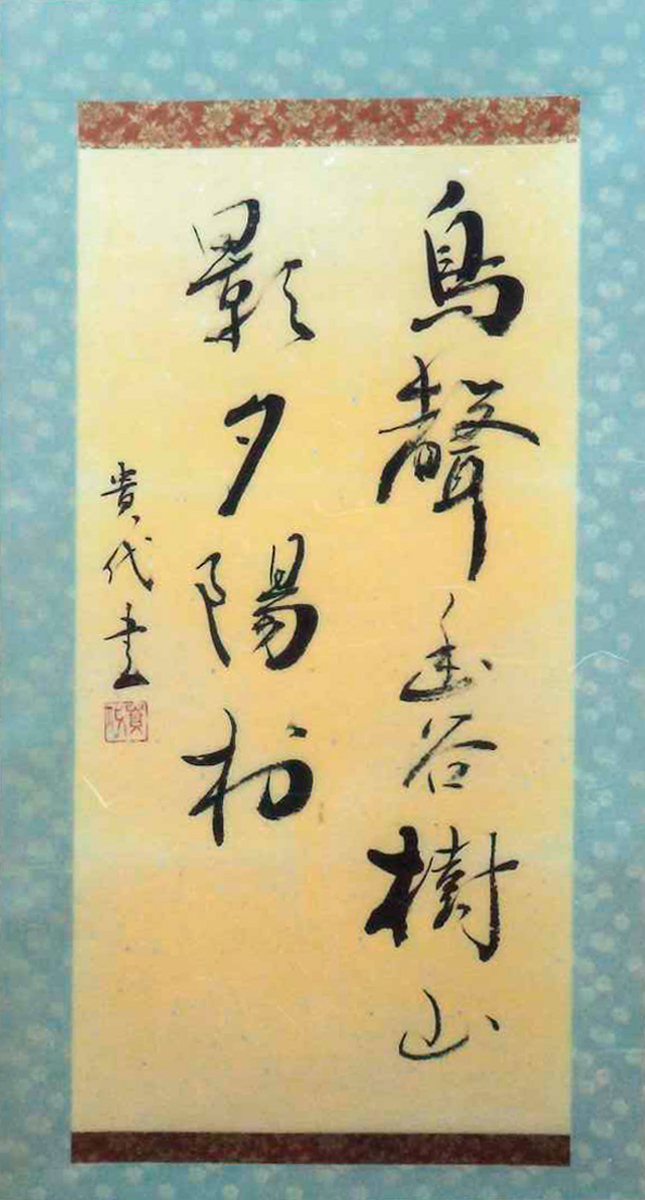 鳥聲幽谷樹山
影夕陽村
貴代書